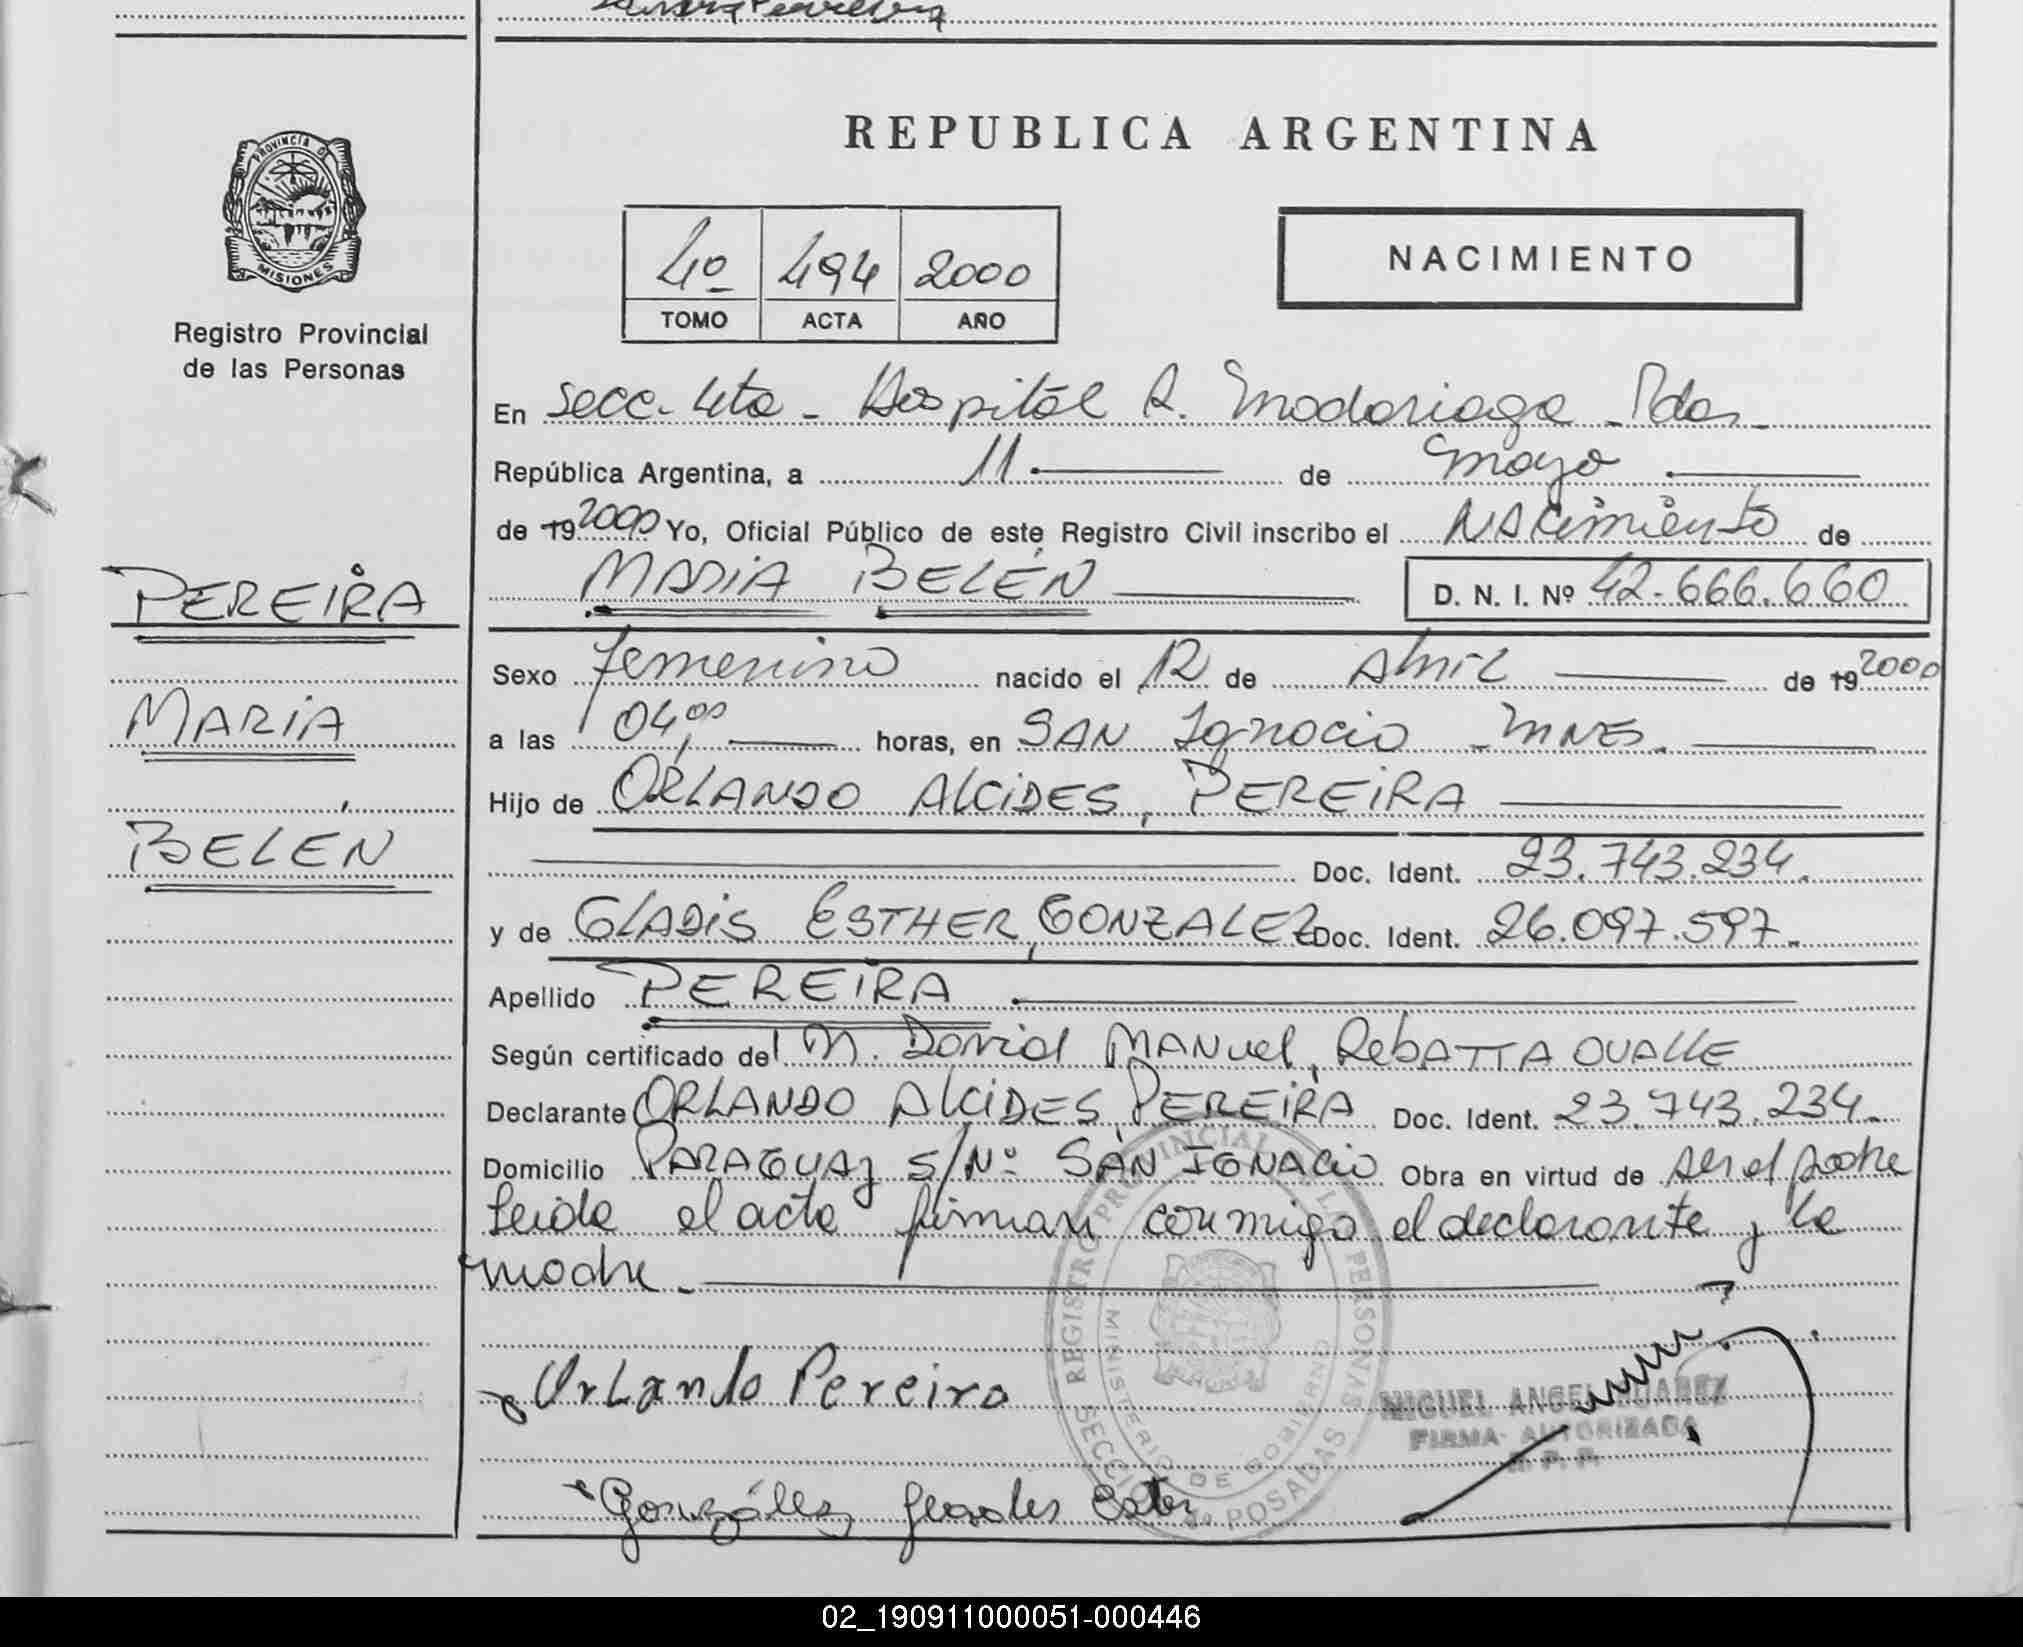 PROVINCIA DE
MISIONES
Registro Provincial
de las Personas
PEREIRA
MARIA
BELEN
REPUBLICA ARGENTINA
4º 494 2000
TOMO ACTA AÑO
NACIMIENTO
En Secc. 4ta - Hospital R. Madariaga - Pdas -
República Argentina, a 11 de Mayo
de 19 2000 Yo, Oficial Público de este Registro Civil inscribo el Nacimiento de
MARIA BELÉN D. N. I. Nº 42.666.660
Sexo femenino nacido el 12 de Abril de 19 2000
a las 04,00 horas, en SAN Ignacio - MNES.
Hijo de ORLANDO ALCIDES, PEREIRA
Doc. Ident. 23.743.234.
y de GLADIS ESTHER, GONZALEZ Doc. Ident. 26.097.597.
Apellido PEREIRA
Según certificado del M. David MANUEL, REBATTA OVALLE
Declarante ORLANDO ALCIDES, PEREIRA Doc. Ident. 23.743.234.
Domicilio PARAGUAY S/Nº SAN IGNACIO Obra en virtud de ser el padre
Leida el acta firman conmigo el declarante y la
madre.
REGISTRO PROVINCIAL DE LAS PERSONAS
MINISTERIO DE GOBIERNO
SECCION 4ª POSADAS
Orlando Pereira
MIGUEL ANGEL SUAREZ
FIRMA AUTORIZADA
R. P. P.
González Glades Ester
02_190911000051-000446